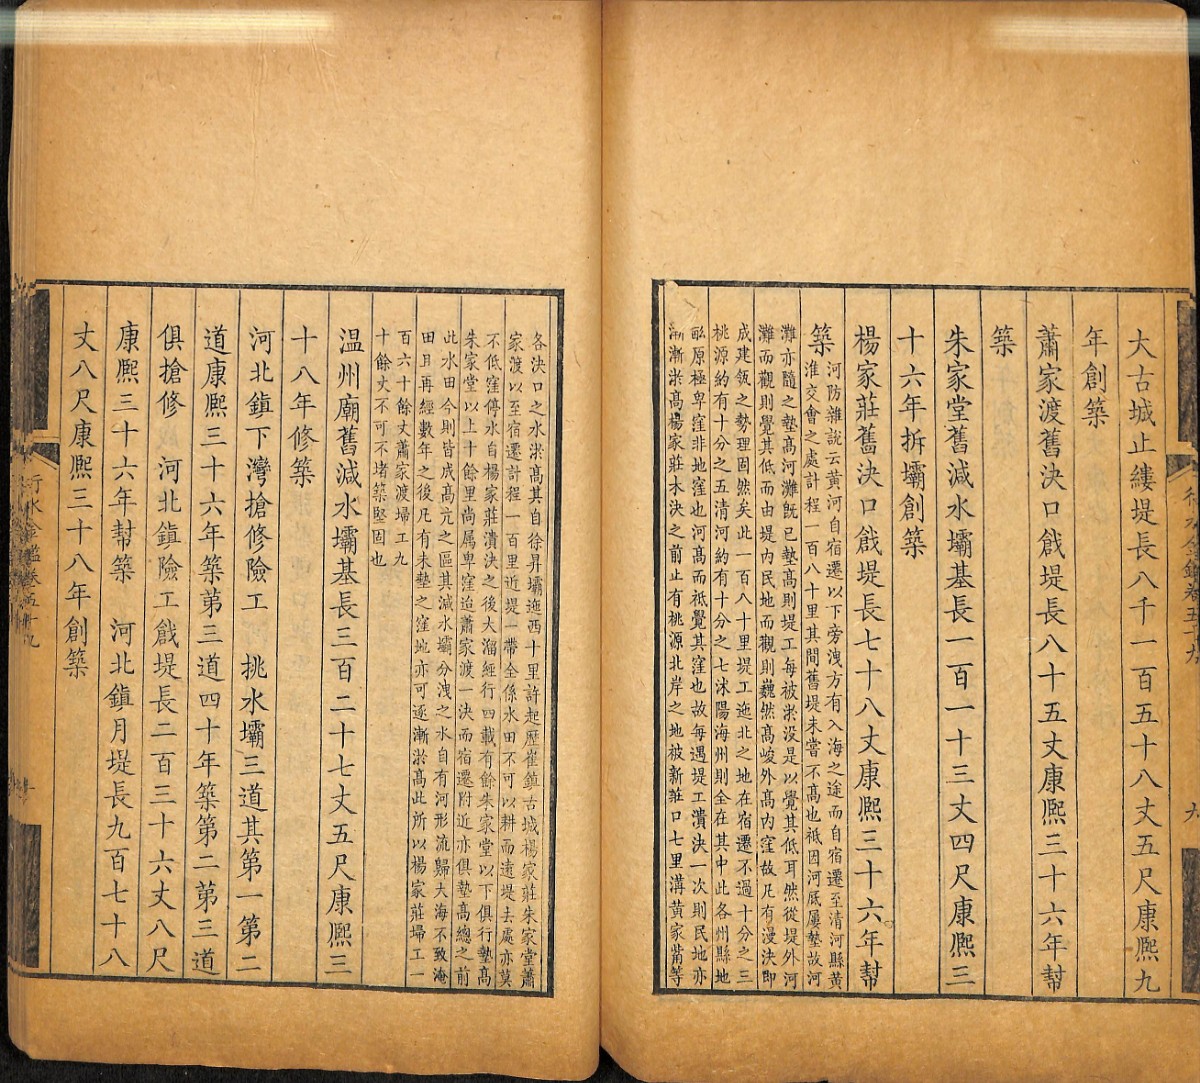 大古城止縷堤長八千一百五十八丈五尺康熙九
年創築
蕭家渡舊決口戧堤長八十五丈康熙三十六年幇
築
朱家堂舊減水壩基長一百一十三丈四尺康熙三
十六年拆壩創築
楊家莊舊決口戧堤長七十八丈康熙三十六年幇
築
河防雜説云黃河自宿遷以下旁洩方有入海之途而自宿遷至清河縣黃
淮交會之處計程一百八十里其間舊堤未嘗不髙也祗因河底屢墊故河
灘亦隨之墊髙河灘既已墊髙則堤工每被淤没是以覺其低耳然從堤外河
灘而觀則覺其低而由堤内民地而觀則巍然髙峻外髙内窪故凡有漫決即
成建瓴之勢理固然矣此一百八十里堤工迤北之地在宿遷不過十分之三
桃源約有十分之五清河約有十分之七沭陽海州則全在其中此各州縣地
畝原極卑窪非地窪也河髙而祗覺其窪也故每遇堤工潰決一次則民地亦
漸漸淤髙楊家莊未決之前止有桃源北岸之地被新莊口七里溝黄家觜等
各決口之水淤髙其自徐昇壩迤西十里許起歷崔鎮古城楊家莊朱家堂蕭
家渡以至宿遷計程一百里近堤一帶全係水田不可以耕而遠堤去處亦莫
不低窪停水自楊家莊潰決之後大溜經行四載有餘朱家堂以下俱行墊髙
朱家堂以上十餘里尚属卑窪迨蕭家渡一決而宿遷附近亦俱墊髙總之前
此水田今則皆成髙亢之區其減水壩分洩之水自有河形流歸大海不致淹
田且再經數年之後凡有未墊之窪地亦可逐漸淤髙此所以楊家莊埽工一
百六十餘丈蕭家渡埽工九
十餘丈不可不堵築堅固也
温州廟舊減水壩基長三百二十七丈五尺康熙三
十八年修築
河北鎮下灣搶修險工　挑水壩三道其第一第二
道康熙三十六年築苐三道四十年築第二苐三道
俱搶修　河北鎮險工戧堤長二百三十六丈八尺
康熙三十六年幇築　河北鎮月堤長九百七十八
丈八尺康熙三十八年創築